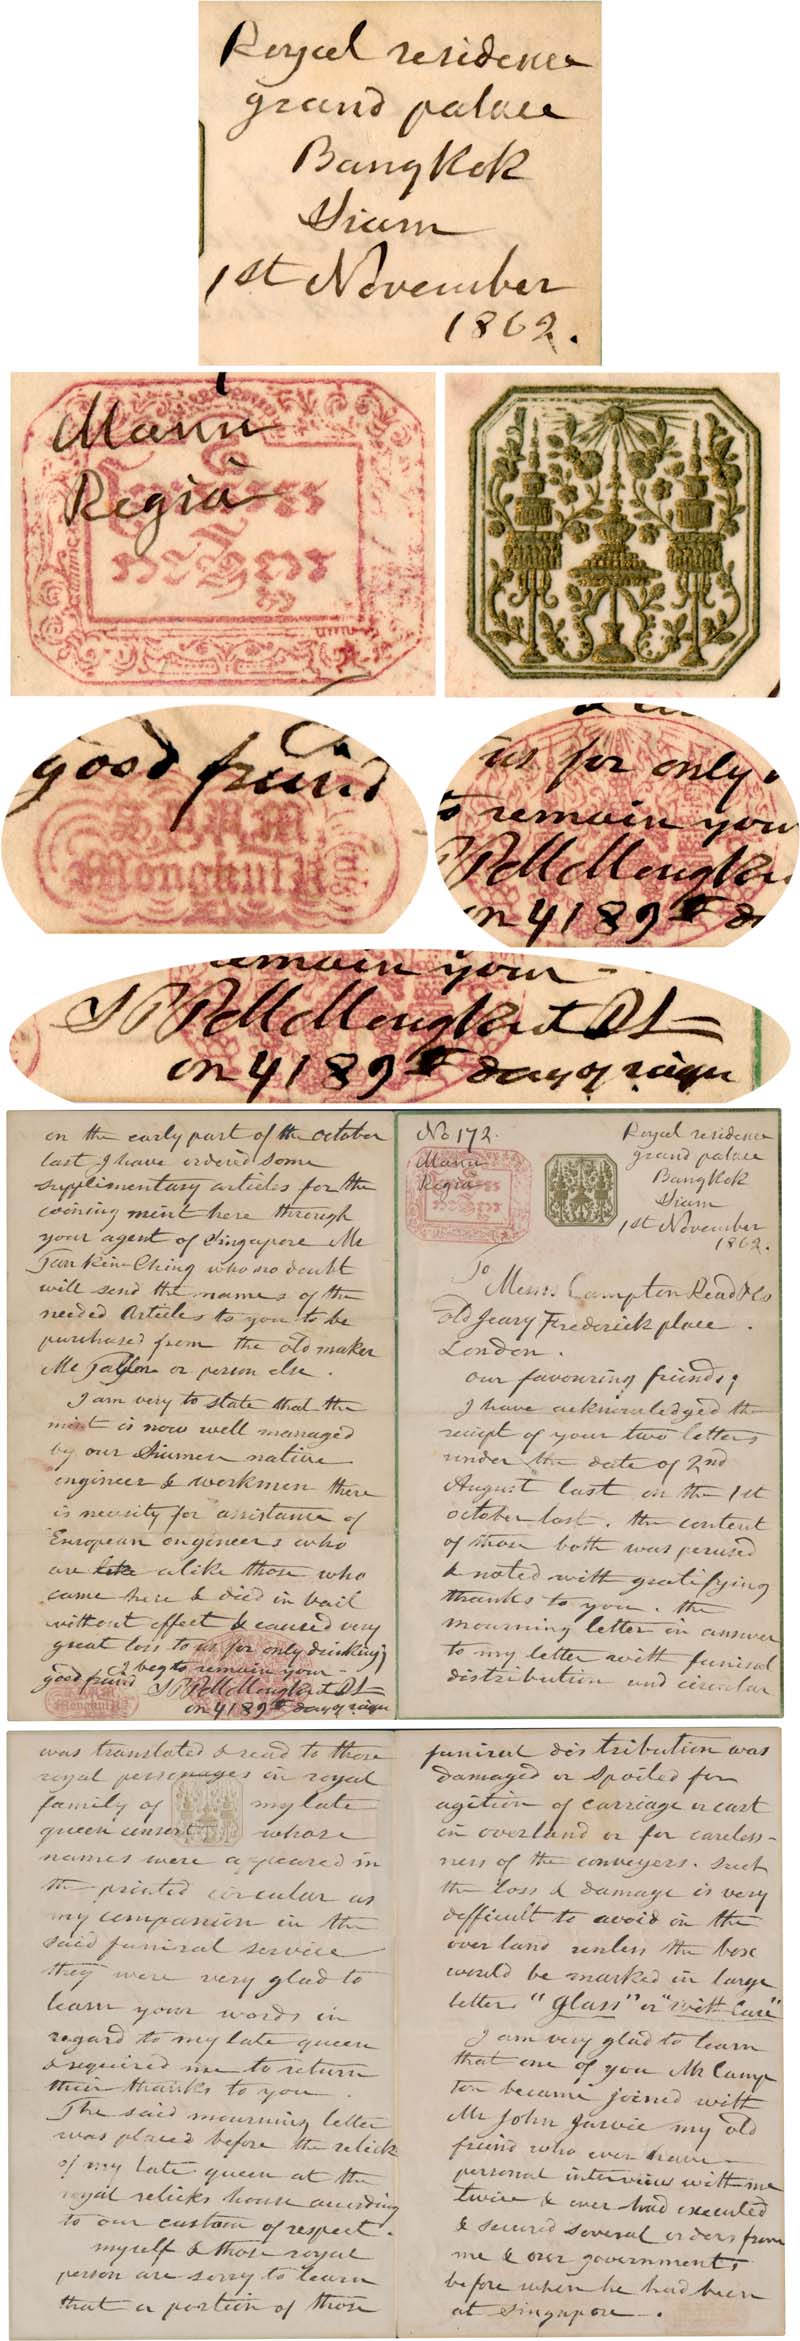 Royal residence
grand palace
Bangkok
Siam
1st November
1862.
Manu
Regia
good friend
S.P.P.M.
Mongkut R
us for only
to remain your
S P P M Mongkut
on 4189th da
remain your -
S P P M Mongkut R S
on 4189th day of reign
No 172.
Manu
Regia
Royal residence
grand palace
Bangkok
Siam
1st November
1862.
To
Messrs Campton Read & Co
old Jeary Frederick place.
London.
our favouring friends;
I have acknowledged the
receipt of your two letters
under the date of 2nd
August last on the 1st
october last. the content
of them both was perused
& noted with gratifying
thanks to you. the
mourning letter in answer
to my letter with funiral
distribution and circular
was translated & read to those
royal personages in royal
family of my late
queen consort whose
names were appeared in
the printed circular as
my companion in the
said funiral service
they were very glad to
learn your words in
regard to my late queen
& required me to return
their thanks to you.
The said mourning letter
was placed before the relick
of my late queen at the
royal relicks house according
to our custom of respect.
myself & those royal
person are sorry to learn
that a portion of those
funiral distribution was
damaged or spoiled for
agition of carriage or cart
in overland or for careless-
ness of the conveyers. such
the loss & damage is very
defficult to avoid in the
over land unless the box
would be marked in large
letters "Glass" or "with Care"
I am very glad to learn
that one of you Mr Camp
ton became joined with
Mr John Jarvie my old
friend who ever have
personal interview with me
twice & ever had executed
& secured several orders from
me & our governments
before when he had been
at Singapore.
on the early part of the october
last I have ordered some
supplimentary articles for the
coining mint here through
your agent of Singapore Mr
Tan Kim Ching who no doubt
will send the names of the
needed Articles to you to be
purchased from the old maker
Mr Taylor or person else.
I am very to state that the
mint is now well managed
by our Siamese native
engineer & workmen there
is necisity for assistance of
European engineers who
are like alike those who
came here & died in vail
without effect & caused very
great loss to us for only drinking;
I beg to remain your -
good friend S P P M Mongkut R S
on 4189th day of reign